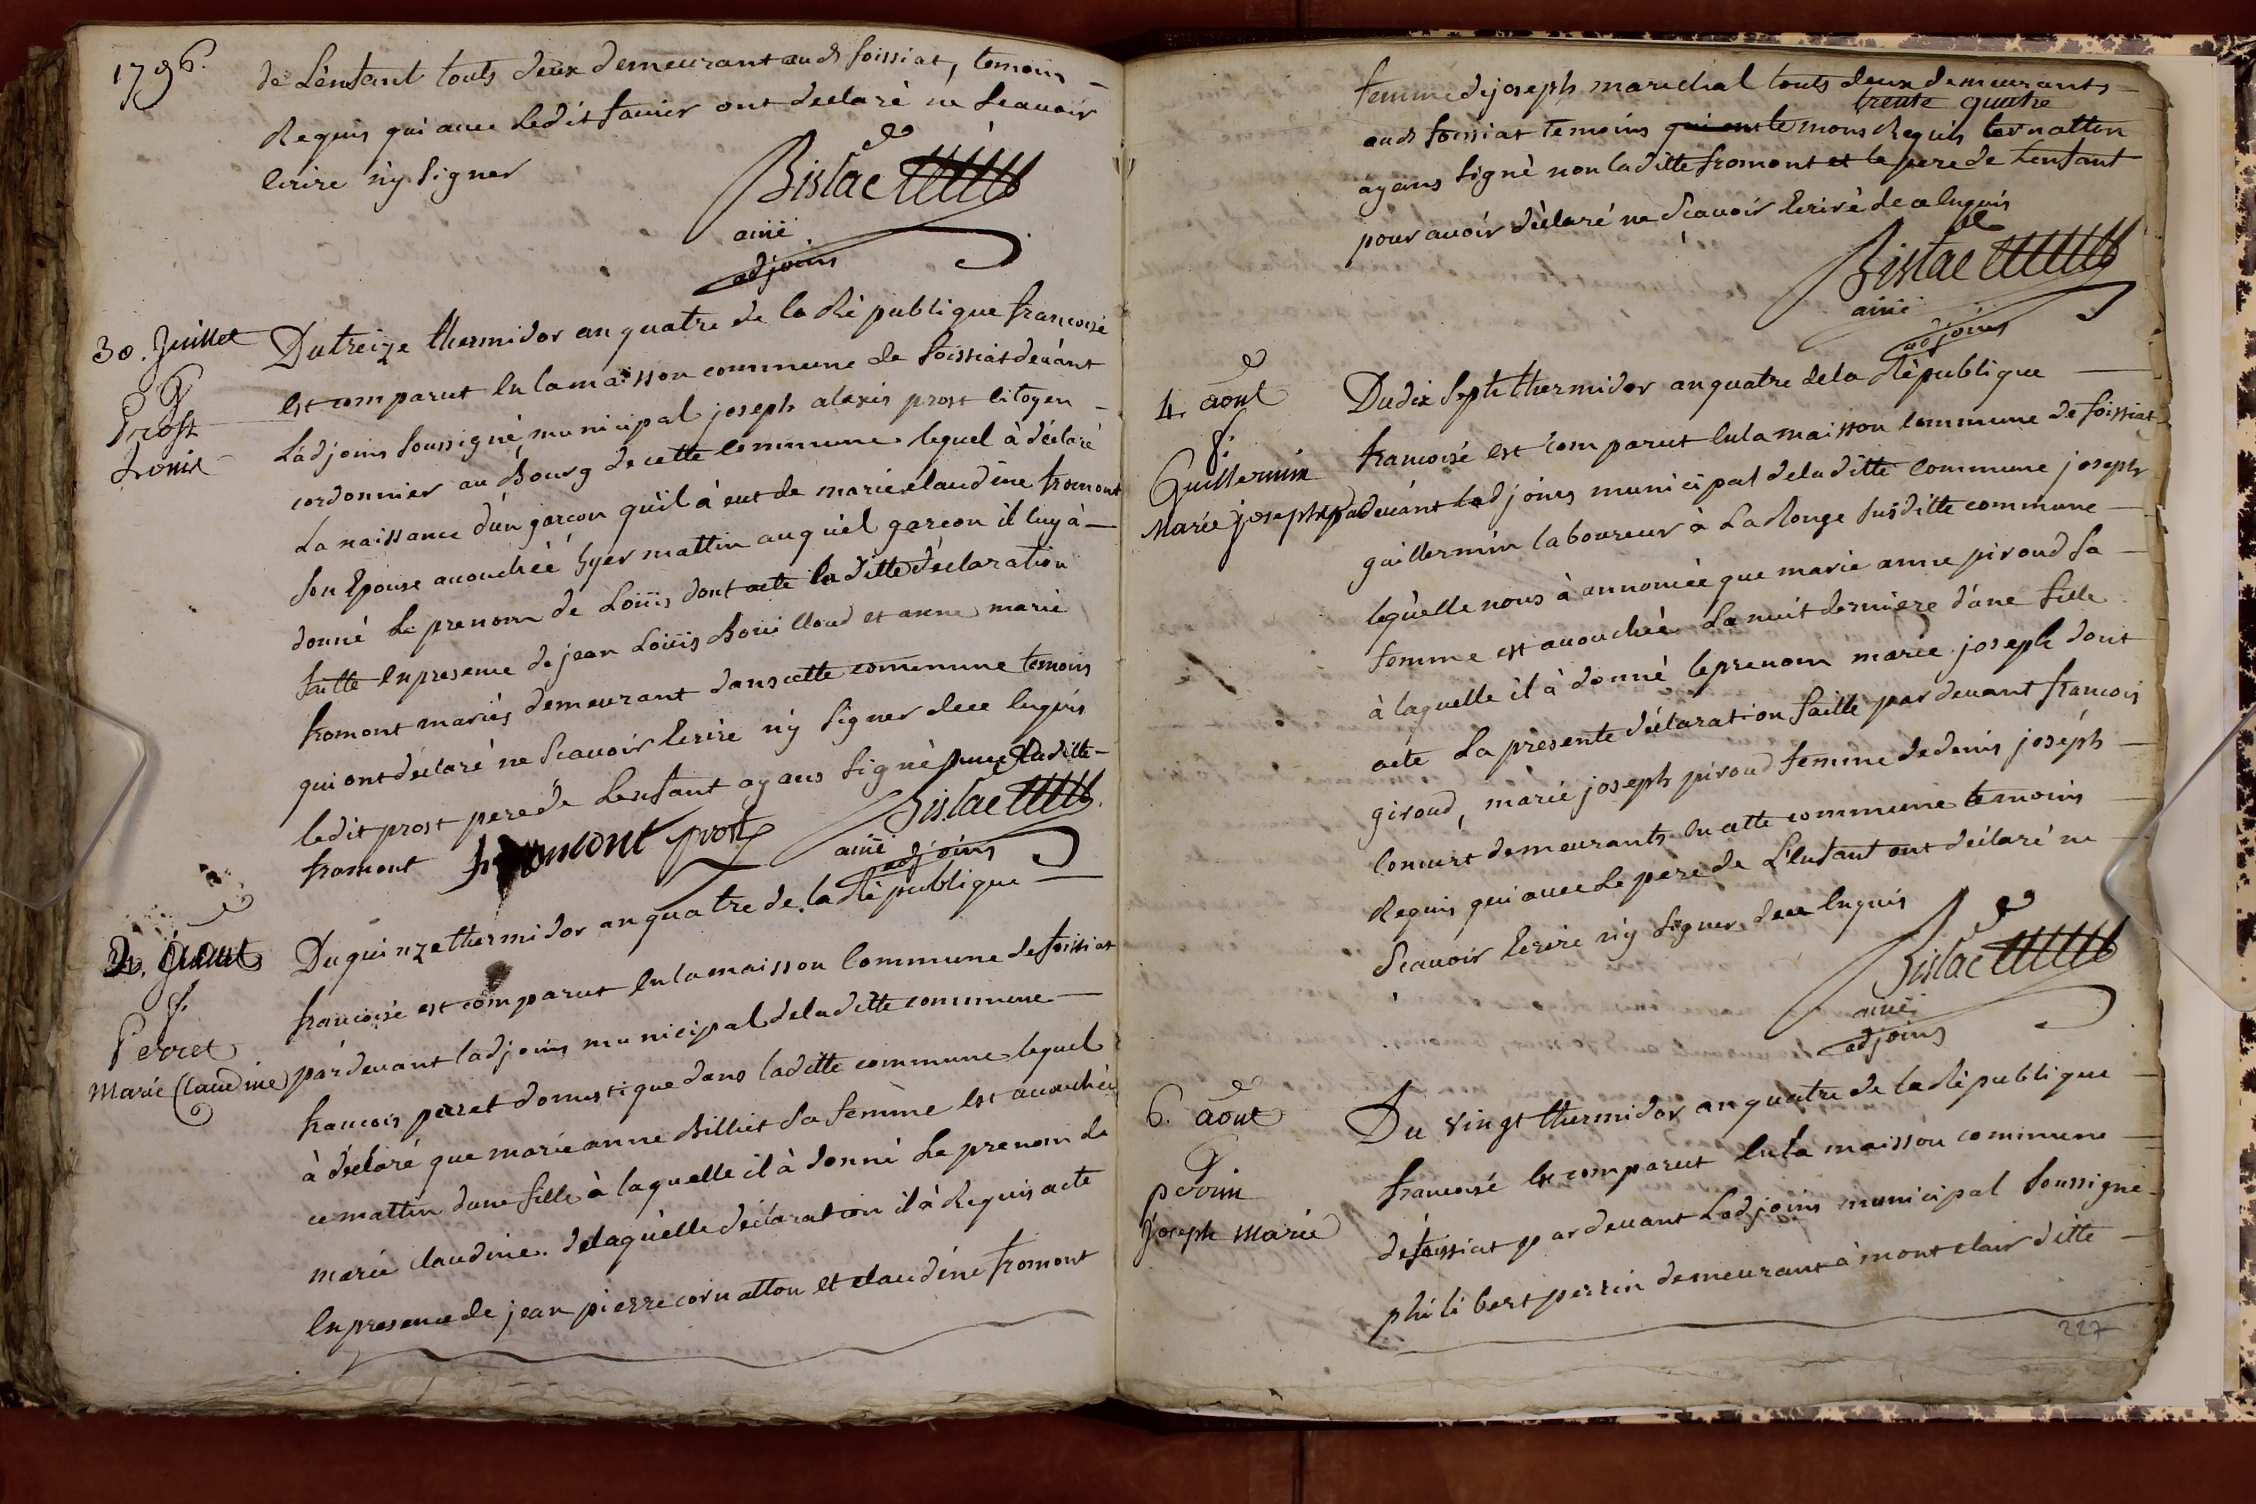 1796.
de L'enfant touts deux demeurant aud foissiat, temoin
Requis qui avec ledit favier ont declaré ne scavoir
lerire ny signer
Bistac
ainé
adjoins
30. Juillet
G
Prost
Louis
Du treize thermidor an quatre de la République francoise
est comparut en la maisson commune de foissiat devant
L'adjoins soussigné municipal joseph alexis prost citoyen
cordonnier au Bourg de cette commune lequel à déclaré
La naissance d'un garcon qu'il à eut de marie claudine fromont
son Epouse accouchéé hyer mattin auquel garcon il luy à
donné le prenom de Loüis dont acte la ditte declaration
faitte en presence de jean Loüis Bouilloud et anne marie
fromont mariés demeurant dans cette commune temoins
qui ont déclaré ne scavoir lerire ny signer de ce enquis
ledit prost pere de L'enfant ayans signé avec laditte
fromont fromont prost
Bistac
ainé
adjoins
2. aout
f.
Perret
Marie Claudine
Du quinze thermidor an quatre de la République
francoise est comparut en la maisson commune de foissiat
pardevant ladjoins municipal de laditte commune
francois perret domestique dans laditte commune lequel
à declaré que marie anne Billiet sa femme est accouchéé
ce mattin dune fille à laquelle il à donné le prenom de
marie claudine. de laquelle declaration il à Requis acte
en presence de jean pierre cornatton et claudine fromont
femme de joseph marechal touts deux demeurants
trente quatre
aud foissiat temoins qui ont le mons Requis cornatton
ayans signé non laditte fromont et le pere de lenfant
pour avoir déclaré ne scavoir lerire de ce enquis
Bistac
ainé
adjoins
4. aout
f.
Guillermin
Marie josephe
Du dix septe thermidor an quatre de la République
francoise est comparut en la maisson commune de foissiat
pardevant ladjoins municipal de laditte commune joseph
guillermin laboureur à La Ronge susditte commune
lequelle nous à annoncée que marie anne piroud sa
femme est accouchéé La nuit derniere d'une fille
à laquelle il à donné le prenom marie joseph dont
acte La presente déclaration faitte pardevant francois
giroud, marie joseph piroud femme de denis joseph
demeurants en cette commune temoins
Requis qui avec le pere de L'enfant ont déclaré ne
scavoir lerire ny signer de ce enquis
Bistac
ainé
adjoins
6. aout
G
perrin
Joseph Marie
Du vingt thermidor an quatre de la République
francoise est comparut en la maisson commune
de foissiat par devant Ladjoins municipal soussigné
philibert perrin demeurant à montclair ditte
227